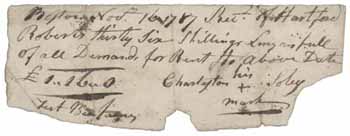 Boston Nov.r 16 1787 Rec.d of Hartford
Roberts thirty Six Shillings in full
of all Demands for Rent to Above Date
£ 1.16.0 Charleston his
+
Test mark